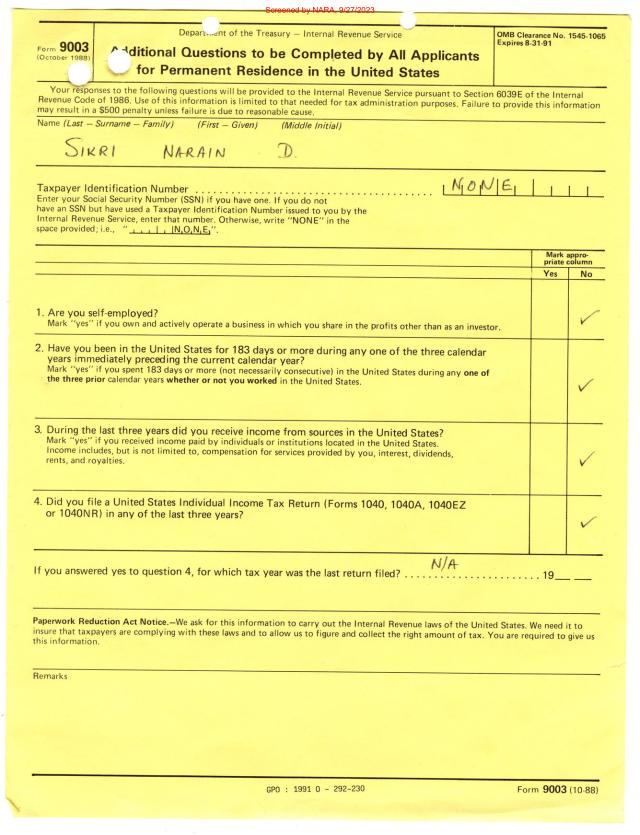 Screened by NARA, 9/27/2023
Department of the Treasury — Internal Revenue Service
Form 9003
(October 1988)
Additional Questions to be Completed by All Applicants
for Permanent Residence in the United States
OMB Clearance No. 1545-1065
Expires 8-31-91
Your responses to the following questions will be provided to the Internal Revenue Service pursuant to Section 6039E of the Internal
Revenue Code of 1986. Use of this information is limited to that needed for tax administration purposes. Failure to provide this information
may result in a $500 penalty unless failure is due to reasonable cause.
Name (Last — Surname — Family) (First — Given) (Middle Initial)
SIKRI NARAIN D.
Taxpayer Identification Number . . . . . . . . . . . . . . . . . . . . . . . . . . . . . . . . . . . . . . . . NONE
Enter your Social Security Number (SSN) if you have one. If you do not
have an SSN but have used a Taxpayer Identification Number issued to you by the
Internal Revenue Service, enter that number. Otherwise, write "NONE" in the
space provided; i.e., " NONE".
Mark appro-
priate column
Yes No
1. Are you self-employed?
Mark "yes" if you own and actively operate a business in which you share in the profits other than as an investor. ✓
2. Have you been in the United States for 183 days or more during any one of the three calendar
years immediately preceding the current calendar year?
Mark "yes" if you spent 183 days or more (not necessarily consecutive) in the United States during any one of
the three prior calendar years whether or not you worked in the United States. ✓
3. During the last three years did you receive income from sources in the United States?
Mark "yes" if you received income paid by individuals or institutions located in the United States.
Income includes, but is not limited to, compensation for services provided by you, interest, dividends,
rents, and royalties. ✓
4. Did you file a United States Individual Income Tax Return (Forms 1040, 1040A, 1040EZ
or 1040NR) in any of the last three years? ✓
If you answered yes to question 4, for which tax year was the last return filed? . . . . N/A . . . . . . . . . . . . . . . . . . . . 19__ __
Paperwork Reduction Act Notice.—We ask for this information to carry out the Internal Revenue laws of the United States. We need it to
insure that taxpayers are complying with these laws and to allow us to figure and collect the right amount of tax. You are required to give us
this information.
Remarks
GPO : 1991 O - 292-230
Form 9003 (10-88)